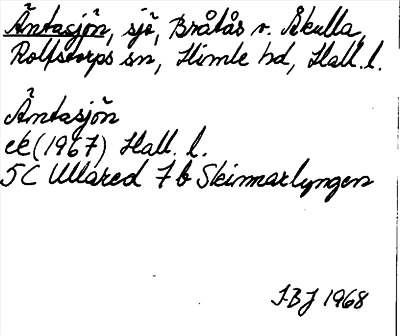 Äntasjön, sjö, Bråtås v. Åkulla,
Rolfstorps sn, Himle hd, Hall. l.
Äntasjön
ek (1967) Hall. l.
5C Ullared 7 b Skinnarlyngen
I-BJ 1968